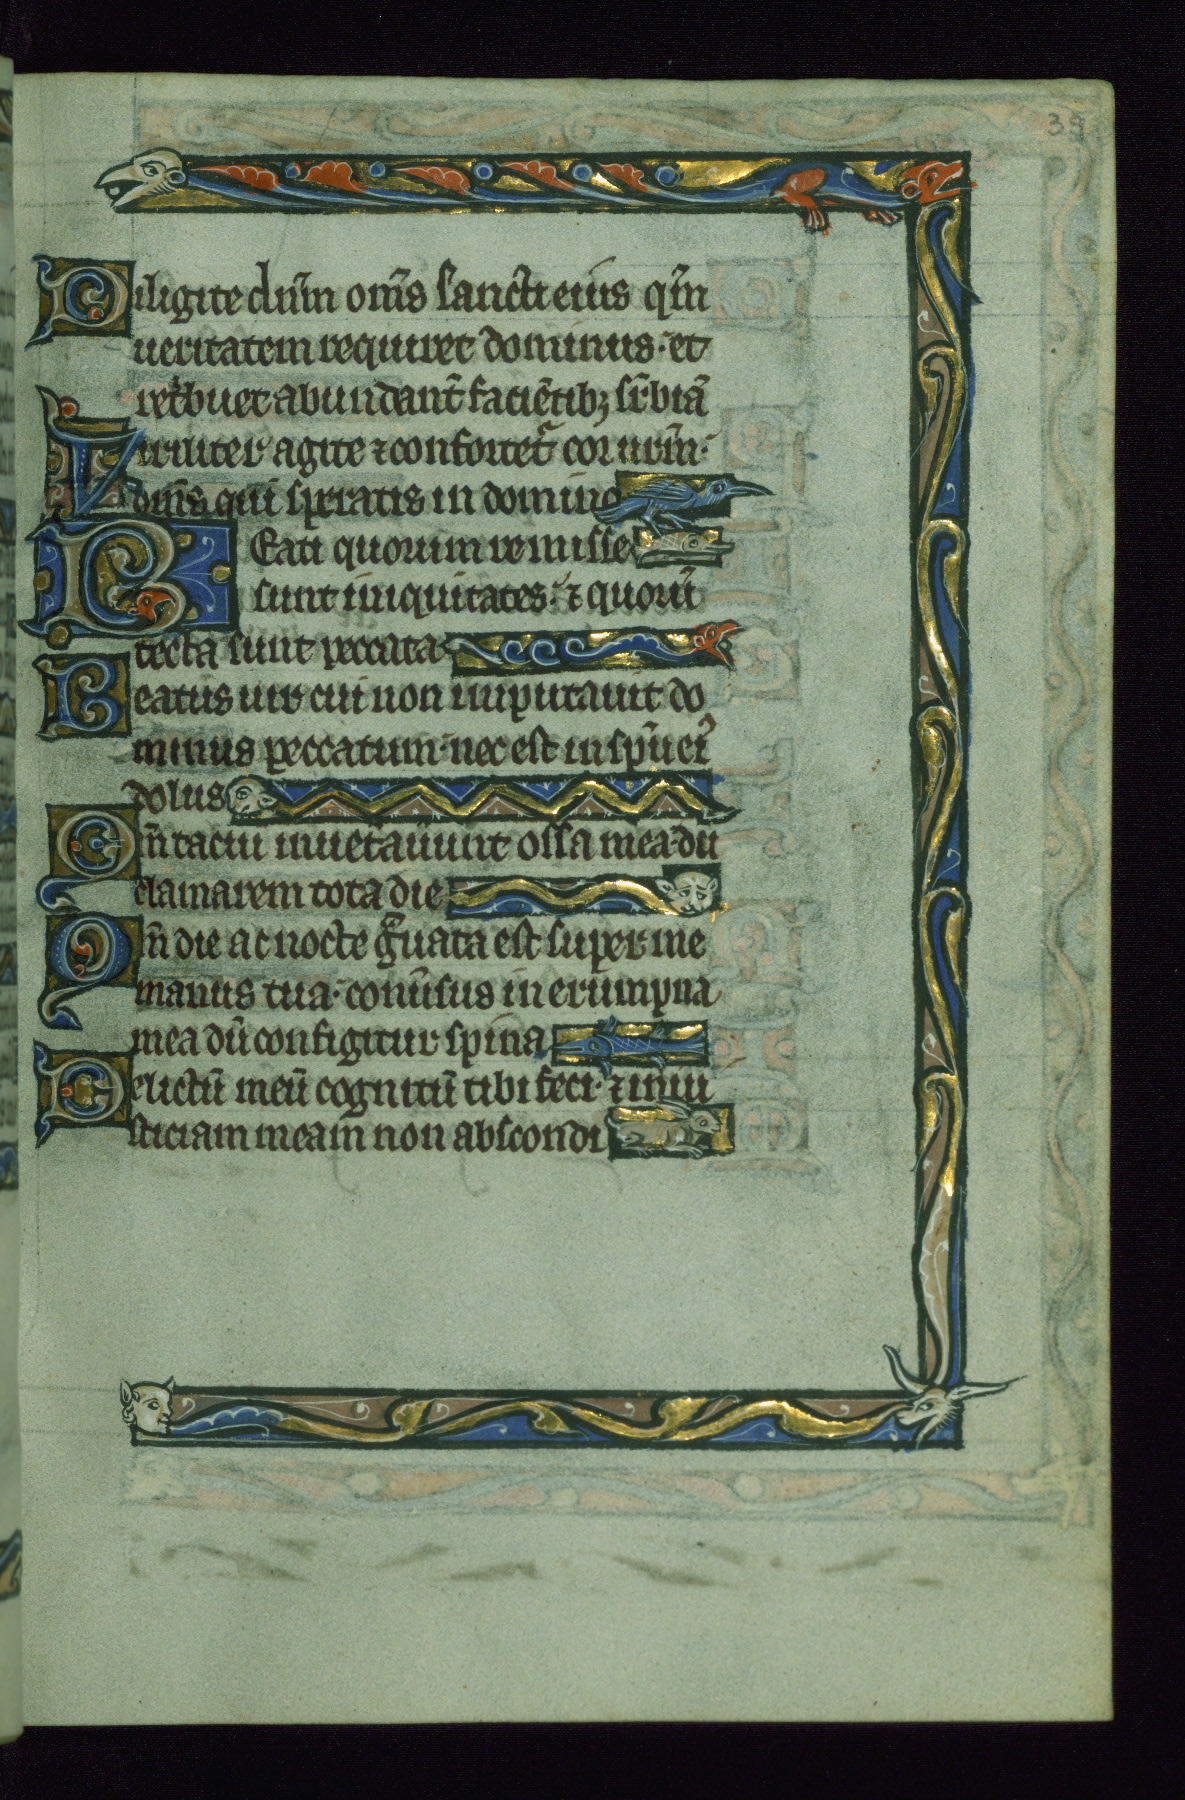 39
Diligite dn̄m om̄s sancti eius qm̄
ueritatem requiret dominus· et
retͥbuet abundant̄ faciētibꝫ suꝑbiā
Viriliter agite ⁊ confortet᷑ cor ur̄m·
om̄s qui speratis in domino
Beati quorum remisse
sunt iniquitates· ⁊ quorū
tecta sunt peccata
Beatus uir cui non imputauit do
minus peccatum· nec est in sp̄u ei᷒
dolus
Qm̄ tacui inuet̄auerunt ossa mea· dū
clamarem tota die
Qm̄ die ac nocte gͣuata est super me
manus tua· conu̅sus in erumpna
mea dū configitur spina
Delictū meū cognitū tibi feci· ⁊ iniu
sticiam meam non abscondi